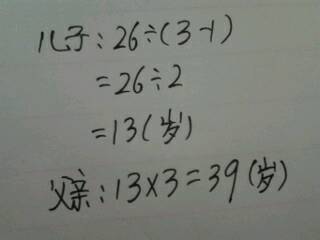 儿子:26÷(3-1)
=26÷2
=13(岁)
父亲:13×3=39(岁)